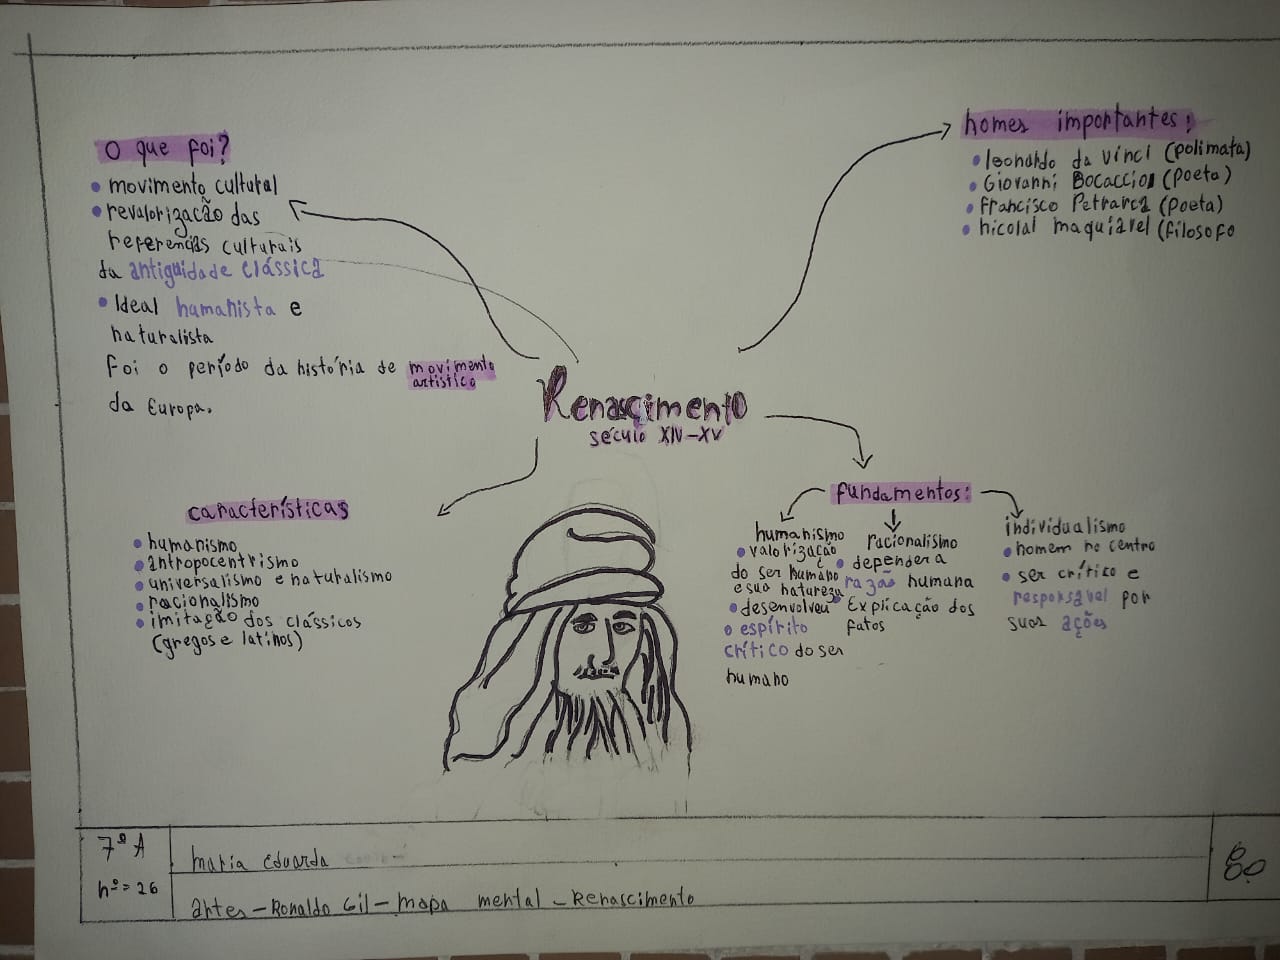 O que foi?
• movimento cultural
• revalorização das
referências culturais
da antiguidade clássica
• Ideal humanista e
naturalista
Foi o período da história de movimento
artístico
da Europa.
homes importantes:
• leonardo da vinci (polimata)
• Giovanni Bocaccio (poeta)
• francisco Petrarca (poeta)
• nicolal maquiavel (filosofo
Renascimento
século XIV-XV
características
• humanismo
• antropocentrismo
• universalismo e naturalismo
• racionalismo
• imitação dos clássicos
(gregos e latinos)
fundamentos:
humanismo
• valorização
do ser humano
e sua natureza
• desenvolveu
o espírito
crítico do ser
humano
racionalismo
• depender a
razão humana
• Explicação dos
fatos
individualismo
• homem no centro
• ser crítico e
responsavel por
suas ações
7º A
nº=26
maria Eduarda
artes-Ronaldo Gil-mapa mental-Renascimento